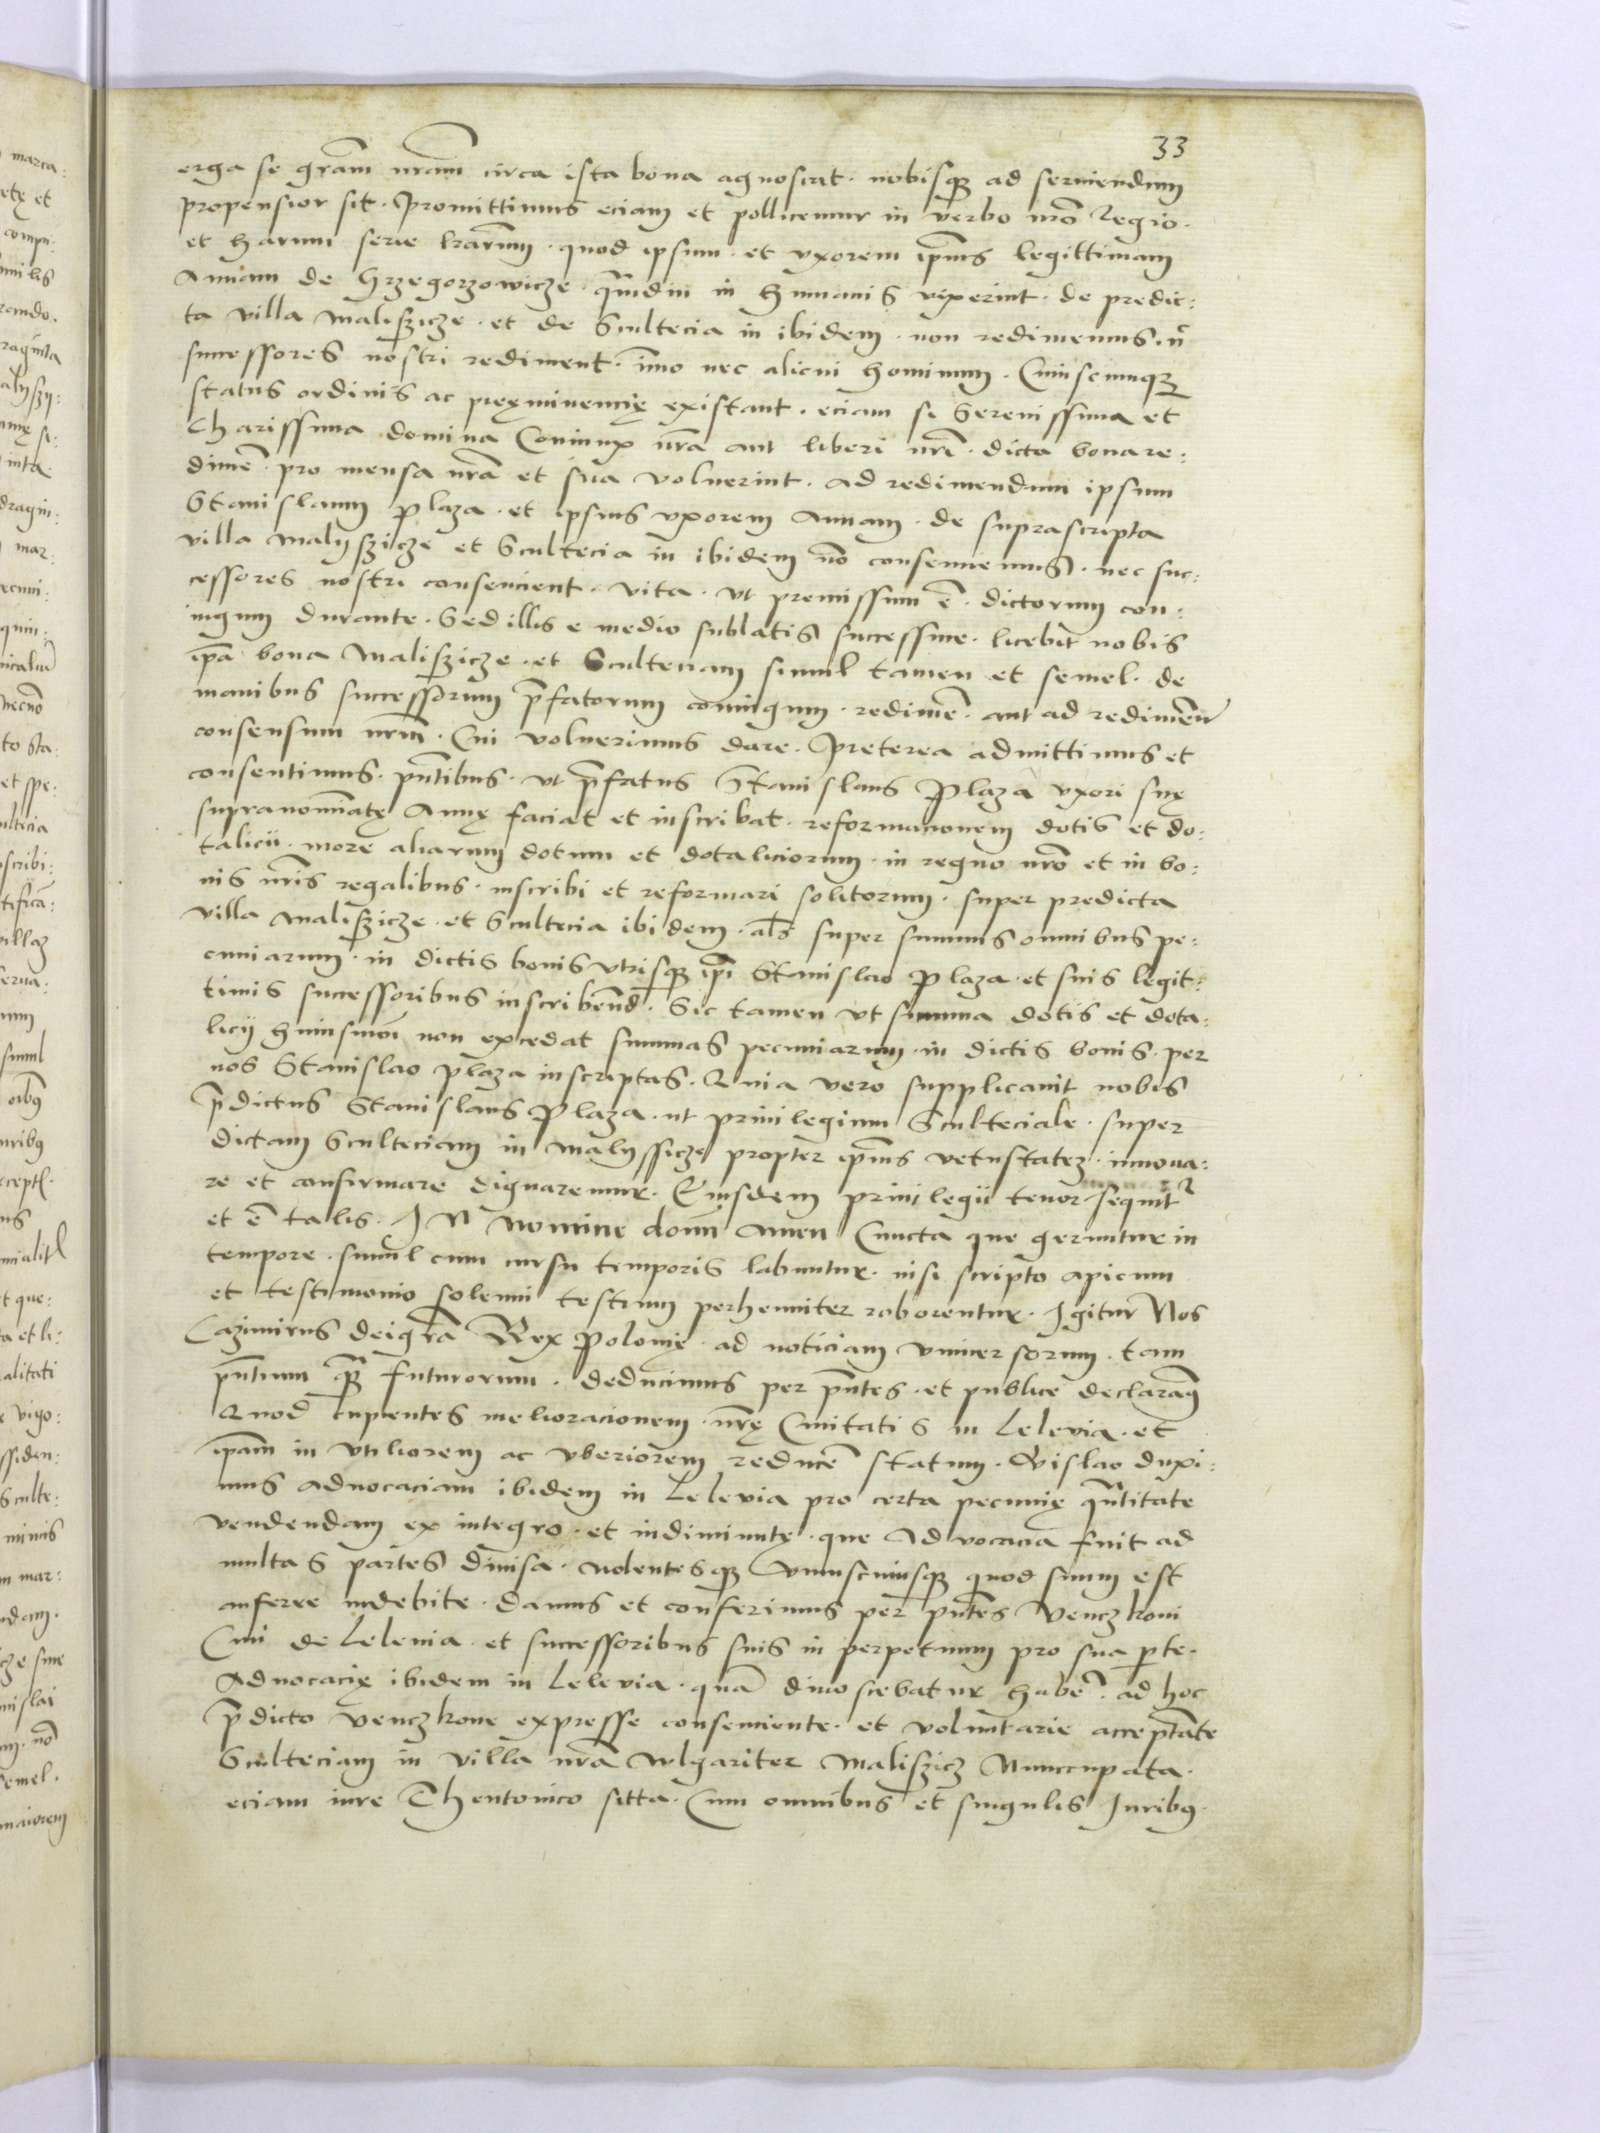 33
erga se grām nrām circa ista bona agnoscat. nobisqꝫ ad seruiendum
propensior sit. Promittimus eciam et pollicemur in verbo nrō Regio.
et harum serie lrārum. quod ipsum. et vxorem ipīus legittimam
Annam de Grzegorzowicze. qmdiu in humanis vixerint. de predic:
ta villa Maliszicze. et de Scultecia in ibidem. non redimemus. nc̄
successores nostri rediment. īmo nec alicui hominum. Cuiuscumqꝫ
status ordinis ac pręminencię existant. eciam si Serenissima et
Charissima domina Coniunx nrā aut liberi nrī. dicta bona re:
dimē. pro mensa nrā et sua voluerint. ad redimendum ipsum
Stanislaum Plaza. et ipsius vxorem Annam. de suprascripta
villa Malyszicze et Scultecia in ibidem nō consenciemus. nec suc:
cessores nostri consencient. vita. vt premissum ē. dictorum con:
iugum durante. Sed illis e medio sublatis successiue. licebit nobis
ipā bona Maliszicze. et Scultenam simul tamen et semel. de
manibus successorum p̄fatorum coniugum. redimē. aut ad redimēn
consensum nrūm. Cui voluerimus dare. Preterea admittimus et
consentimus. pn̄tibus. vt p̄fatus Stanislaus Plaza vxori suę
supranomīatę Annę faciat et inscribat. reformacionem dotis et do:
talicii. more aliarum dotum et dotaliciorum. in regno nrō et in bo:
nis nrīs regalibus. inscribi et reformari solitorum. super predicta
villa Maliszicze. et Scultecia ibidem. als̄ super summis omnibus pe:
cuniarum. in dictis bonis vtrisqꝫ ipī Stanislao Plaza. et suis legit:
timis successoribus inscribēnd. Sic tamen vt summa dotis et dota:
licij huiusmōi non excedat summas pecuniarum. in dictis bonis. per
nos Stanislao Plaza inscriptas. Quia vero supplicauit nobis
p̄dictus Stanislaus Plaza. ut priuilegium Sculteciale. super
dictam Sculteciam in Malyssicze propter ipīus vetustatez. innoua:
re et confirmare dignaremur. Eiusdem priuilegii tenor sequit᷑
et ē talis. IN Nomine domī Amen Cuncta que geruntur in
tempore. simul cum cursu temporis labuntur. nisi scripto apicum
et testimonio solenni testium perhenniter roborentur. Igitur Nos
Cazimirus dei grā Rex Polonię. ad noticiam vniuersorum. tam
pn̄tium qꝫ̄ futurorum. deducimus per pn̄tes. et publice declaram̄
Quod cupientes melioracionem. nrę Ciuitatis in Lelevia. et
ipām in vtiliorem ac vberiorem reducē statum. Wislao duxi:
mus aduocaciam ibidem in Lelevia pro certa pecunię qn̄titate
vendendam ex integro. et indiminutę. que Aduocacia fuit ad
multas partes diuisa. nolentesqꝫ vniuscuiusqꝫ quod suum est
auferre indebite. damus et conferimus per pn̄tes Venczkoni
Ciui de Leleuia. et successoribus suis in perpetuum pro sua pꝑte.
Aduocacię ibidem in Lelevia. quā dinoscebatur habē. ad hoc
p̄dicto Venczkone expresse consenciente. et voluntarie acceptāte
Sculteciam in villa nrā wlgariter Maliszicz Nuncupata.
eciam iure Theutonico sitta. Cum omnibus et singulis Juribꝰ.